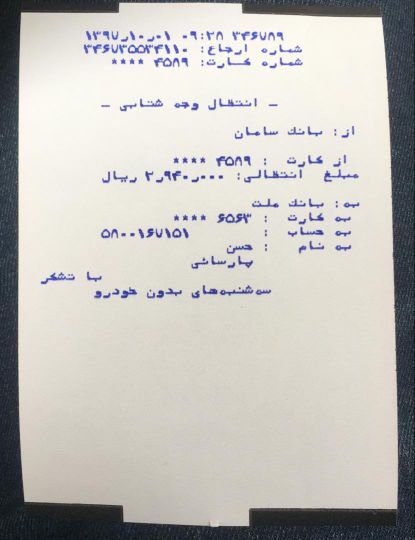 ۳۴۶۷۸۹ ۰۹:۲۸ ۱۳۹۷ر۱۰ر۰۱
شماره ارجاع: ۳۴۶۷۳۵۵۳۴۱۱۰
شماره کارت: ۴۵۸۹ ****
- انتقال وجه شتابی -
از: بانک سامان
از کارت : ۴۵۸۹ ****
مبلغ انتقالی: ۲ر۹۴۰ر۰۰۰ ریال
به: بانک ملت
به کارت : ۶۵۶۳ ****
به حساب : ۵۸۰۰۱۶۷۱۵۱
به نام : حسن
پارسائی
با تشکر
سه‌شنبه‌های بدون خودرو